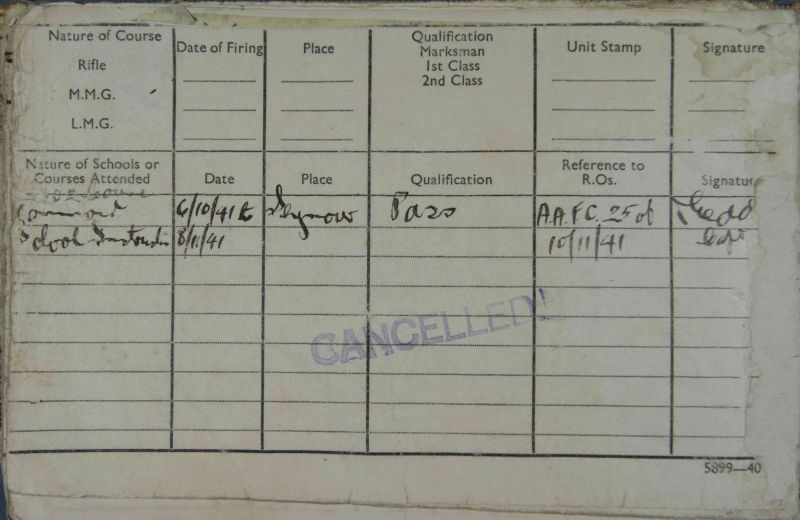 Nature of Course Date of Firing Place Qualification Unit Stamp Signature
Marksman
Rifle 1st Class
2nd Class
M.M.G.
L.M.G.
Nature of Schools or Courses Attended Date Place Qualification Reference to R.Os. Signatur
Command 6/10/41 to Pass A.A.F.C. 25 of
School 8/11/41 10/11/41
CANCELLED
5899—40